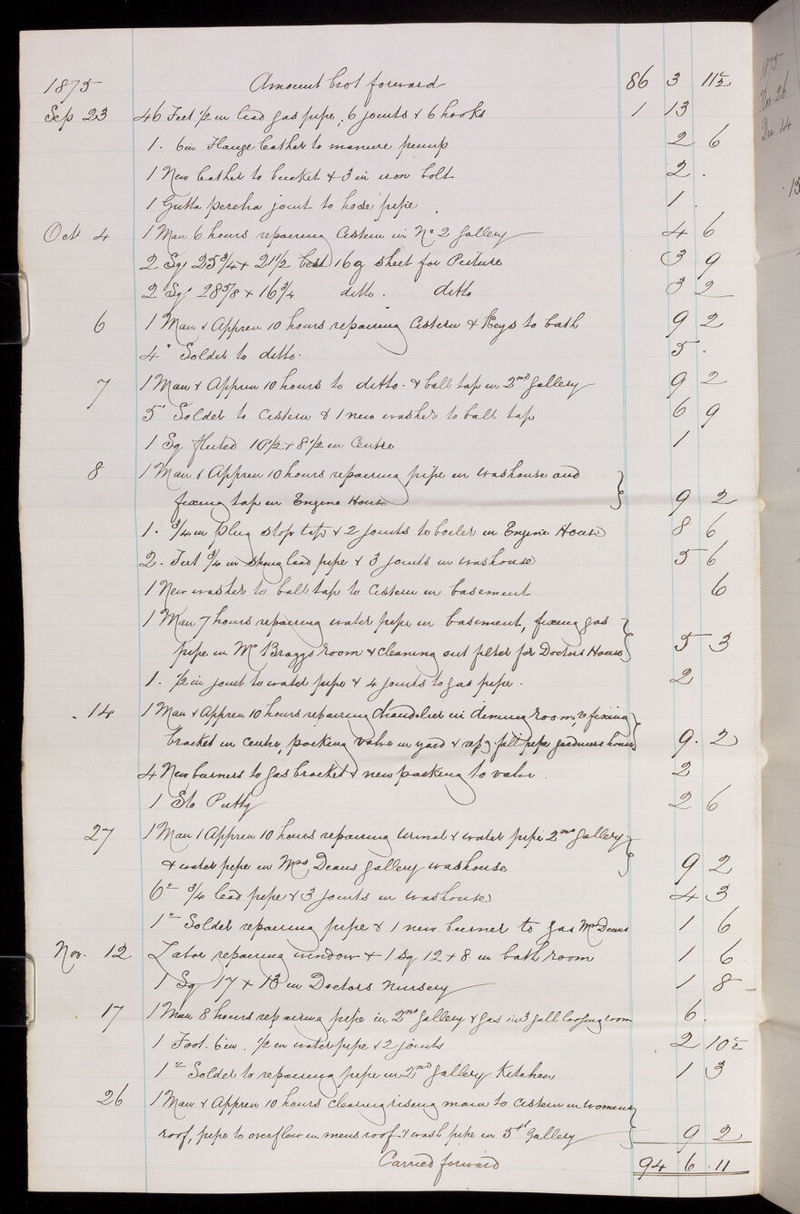 1875 Amount brot forward 86 3 11½
Sep 23 46 Feet ½ in lead gas pipe, 6 joints & 6 hooks 1 13
1. 6in Flange leather to manure pump 2 6
1 New leather to bucket & 3 in iron bolt 2 .
1 Gutta percha joint to hose pipe 1 .
Oct 4 1 Man 6 hours repairing Cistern in No 2 Gallery 4 6
2 Sqs 25¾ + 21½ best 16 oz sheet for Picture 3 9
2 Sqs 28⅝ + 16¾ ditto . ditto 3 2
6 1 Man & Appren 10 hours repairing Cistern & Keys to bath 9 2
4" Solder to ditto. 5 .
7 1 Man & Appren 10 hours to ditto. & ball tap in 2nd gallery 9 2
5" Solder to Cistern & 1 new washer to ball tap 6 9
1 Sq fluted 10½ + 8½ in Centre 1
8 1 Man & Appren 10 hours repairing pipe in washouse and
fixing tap in Engine House 9 2
1. ¾ in plug stop tap & 2 joints to boiler in Engine House 8 6
2. Feet ¾ in strong lead pipe & 3 joints in washouse 5 6
1 New washer to ball tap to Cistern in basement 6
1 Man 7 hours repairing water pipe in basement, fixing gas
pipe in Mr Braggs room & cleaning out filter for Doctors House 5 3
1. ½ in joint to water pipe & 4 joints to gas pipe . 2
14 1 Man & Appren 10 hours repairing Chandelier in dining room, refixing
bracket in centre, packing valve in yard & repg fall pipe gardeners house 9. 2
4 New burners to gas bracket & new packing to valve . 2
1 Sto Putty 2 6
27 1 Man 1 Appren 10 hours repairing urinal & water pipe 2nd gallery
& water pipe in Mrs Deans gallery washouse 9 2
6" ¾ lead pipe & 3 joints in washouse 4 3
1" Solder repairing pipe & 1 new burner to gas Mrs Deans 1 6
Nov. 12 Labor repairing window & 1 sq 12 + 8 in bath room 1 6
1 Sq 17 + 13 in Doctors nursery 1 8
17 1 Man 8 hours repairing pipe in 2nd gallery & gas in 3 gall 6 .
1 Foot. 6in. ½ in water pipe & 2 joints 2 10½
1" Solder to repairing pipe in 2nd gallery Kitchen 1 3
26 1 Man & Appren 10 hours cleaning rising main to Cistern in womens
roof, pipe to overflow in mens roof & wash pipe in 3rd Gallery 9 2
Carried forward 94 6 11
1875
Nov 26
Dec 14